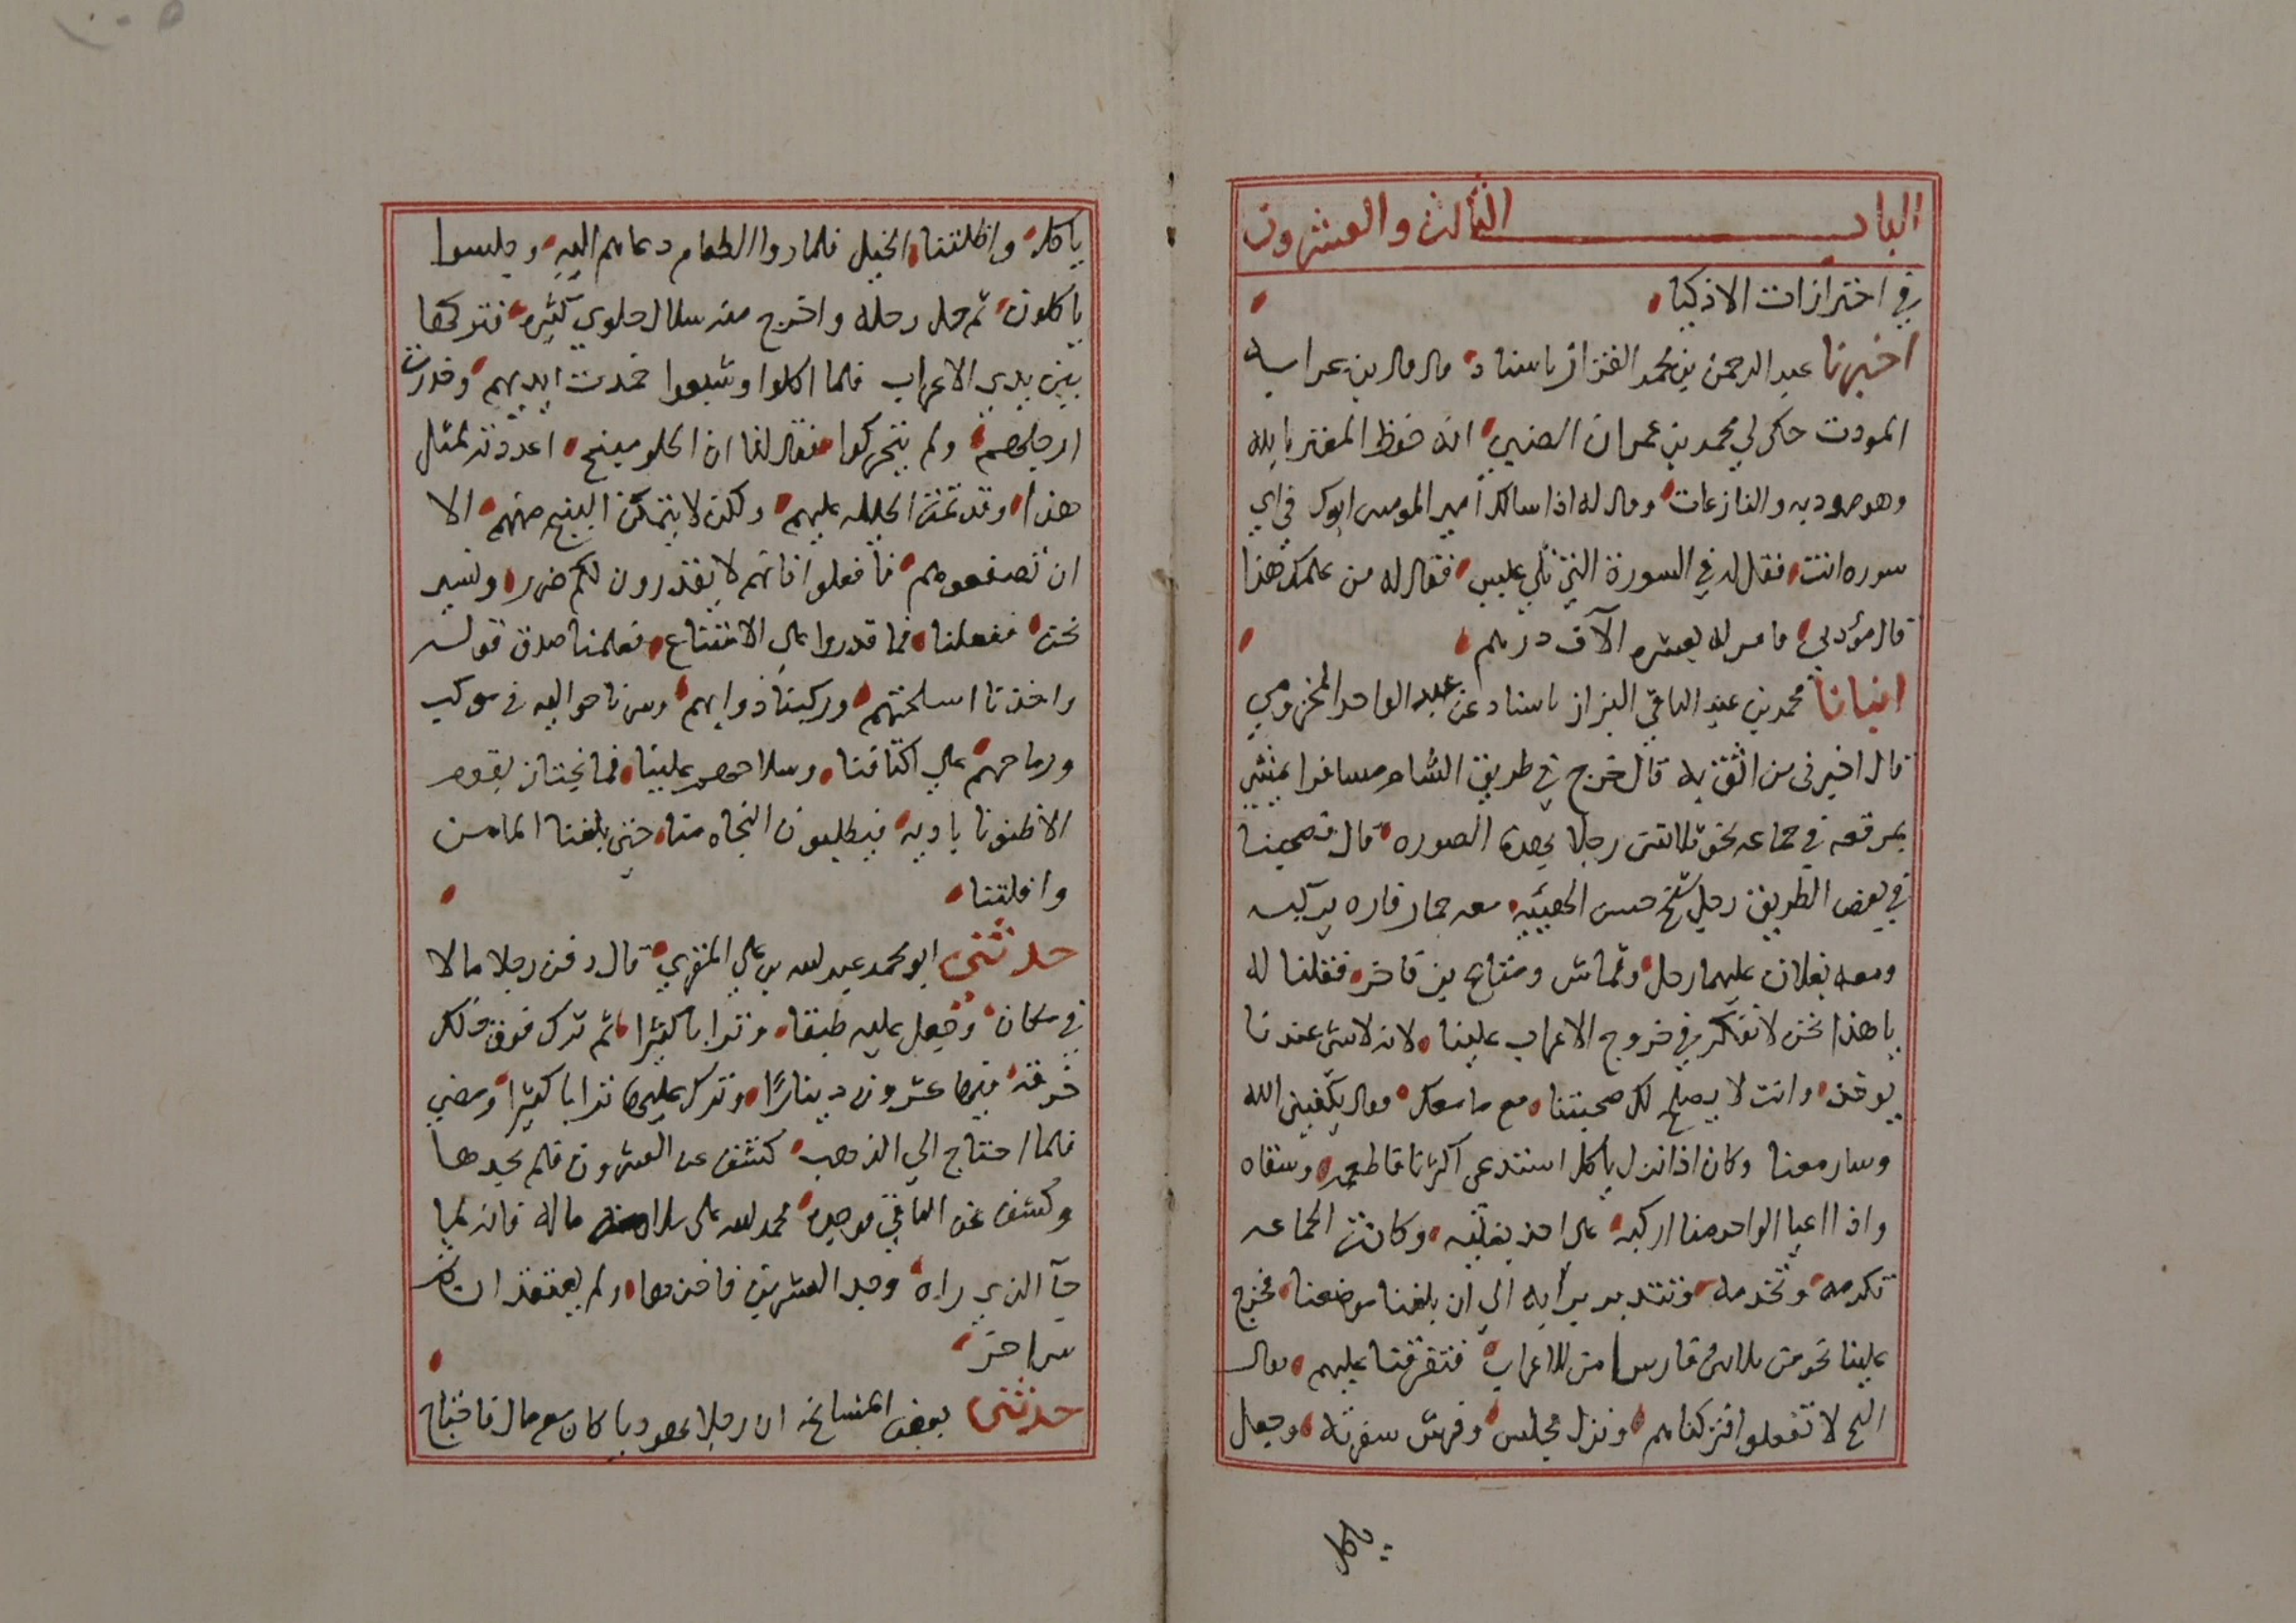 الباب الثالث والعشرون
في احترازات الاذكيا
اخبرنا عبد الرحمن بن محمد القزاز باسناد قال قال بن عرابه
المودت حكى لي محمد بن عمران الضبي انه حفظ المعتز بالله
وهو موديه والنازعات وقال له اذا سالك امير المومنين ابوك في اي
سوره انت فقال له في السورة التي تلي عبس فقال له من علمك هذا
قال مؤدبي فامر له بعشره الآف درهم
انبانا محمد بن عبد الباقي البزاز باسناد عن عبد الواحد المخزومي
قال اخبرنى من اثق به قال خرج في طريق الشام مسافرا يمشي
بمرقعه في جماعه نحو ثلاثين رجلا بهذه الصوره قال فصحبنا
في بعض الطريق رجل شيخ حسن الهييه معه حمار فاره يركبه
ومعه بغلان عليهما رحل وقماش ومتاع فاخر فقلنا له
يا هذا نحن لا نفكر في خروج الاعراب علينا لانه لاشى عندنا
يوخذ وانت لا يصلح لك صحبتنا مع ما معك فقال يكفينى الله
وسار معنا وكان اذا نزل ياكل استدعى اكثرنا فاطعمه وسقاه
واذا اعيا الواحد منا اركبه على احد بغليه وكانت الجماعه
تكرمه وتخدمه وتتدبر برايه الى ان بلغنا موضعنا فخرج
علينا نحو من ثلاثين فارسا من الاعراب فتفرقنا عليهم فقال
الشيخ لا تفعلوا فتركناهم ونزل فجلس وفرش سفرته وجعل
ياكل
ياكل واظلتنا الخيل فلما راوا الطعام دعاهم اليه وجلسوا
ياكلون ثم حل رحله واخرج منه سلال حلوي كثيره فتركها
بين يدي الاعراب فلما اكلوا وشبعوا خمدت ايديهم وخدرت
ارجلهم ولم يتحركوا فقال لنا ان الحلو مبنج اعددته لمثل
هذا وقد تمت الحيله عليهم ولكن لا يتمكن البنج منهم الا
ان تصفعوهم فافعلوا فانهم لا يقدرون لكم ضرر ونسير
نحن ففعلنا فما قدروا على الامتناع فعلمنا صدق قوله
واخذنا اسلحتهم وركبنا دوابهم وسرنا حواليه في موكب
ورماحهم على اكتافنا وسلاحهم علينا فما نجتاز بقوم
الاظنونا باديه فيطلبون النجاه منا حتى بلغنا المامن
وافلتنا
حدثني ابو محمد عبد الله بن علي المقري قال دفن رجلا مالا
في مكان وجعل عليه طبقا وترابا كثيرا ثم ترك فوق ذلك
خرقه فيها عشرون دينارًا وترك عليها ترابا كثيرا ومضى
فلما احتاج الي الذهب كشف عن العشرون فلم يجدها
وكشف عن الباقي فوجده فحمد الله على سلامه ماله فانه لما
جآ الذي راه وجد العشرين فاخذها ولم يعتقد ان
شي اخر
حدثني بعض المشايخ ان رجلا يهوديا كان معه مال فاحتاج